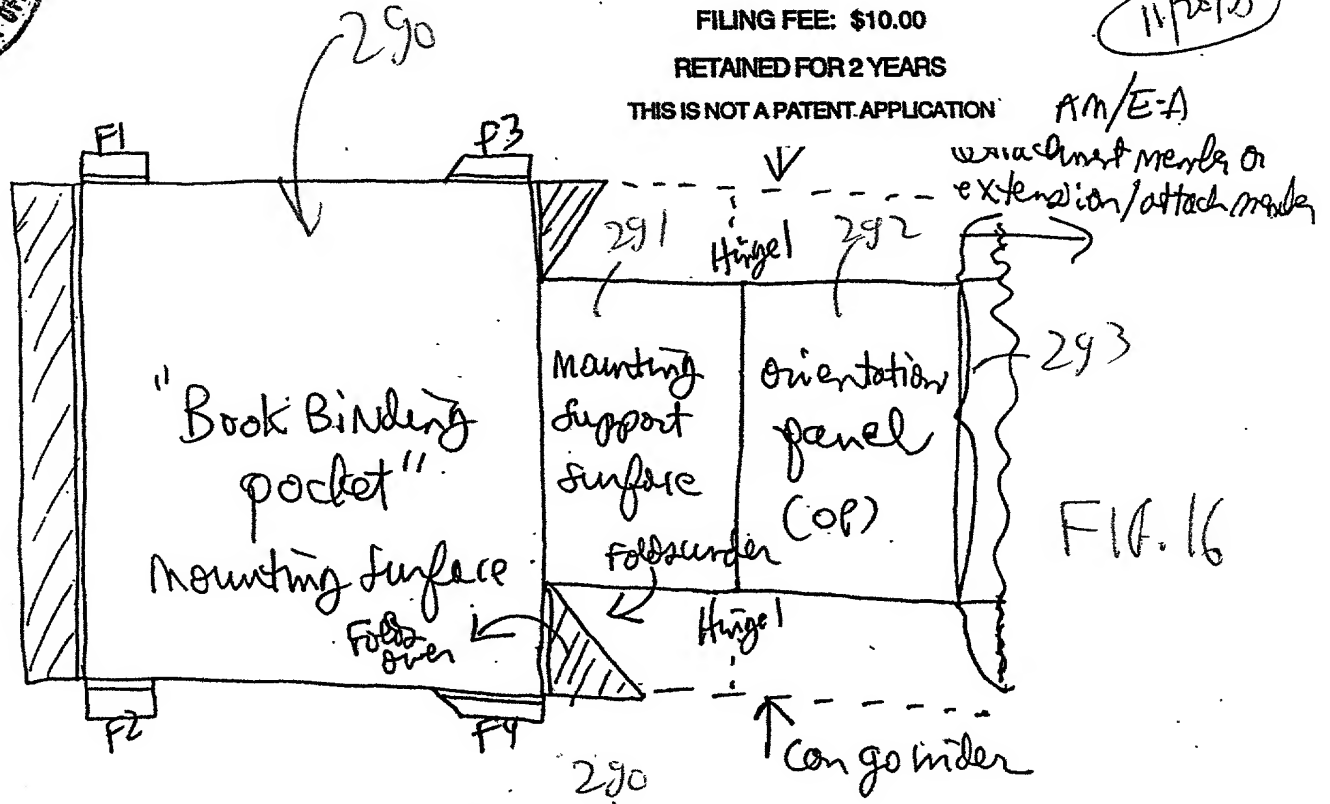 290
FILING FEE: $10.00
RETAINED FOR 2 YEARS
THIS IS NOT A PATENT APPLICATION
AM/E-A
attachment member or
extension/attach member
F1
F3
291
Hinge 1
292
293
"Book Binding
pocket"
mounting surface
mounting
support
surface
orientation
panel
(OP)
FIG. 16
Folds under
Folds
over
Hinge 1
F2
F4
290
Can go wider